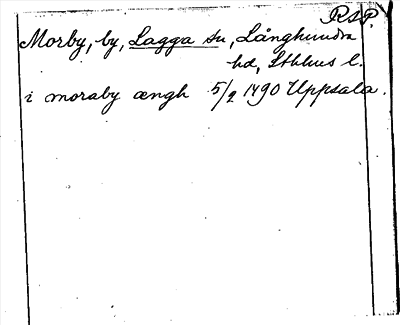 RAP.
Morby, by, Lagga sn, Långhundra
hd, Sthlms l.
i moraby ængh 5/2 1490 Uppsala.